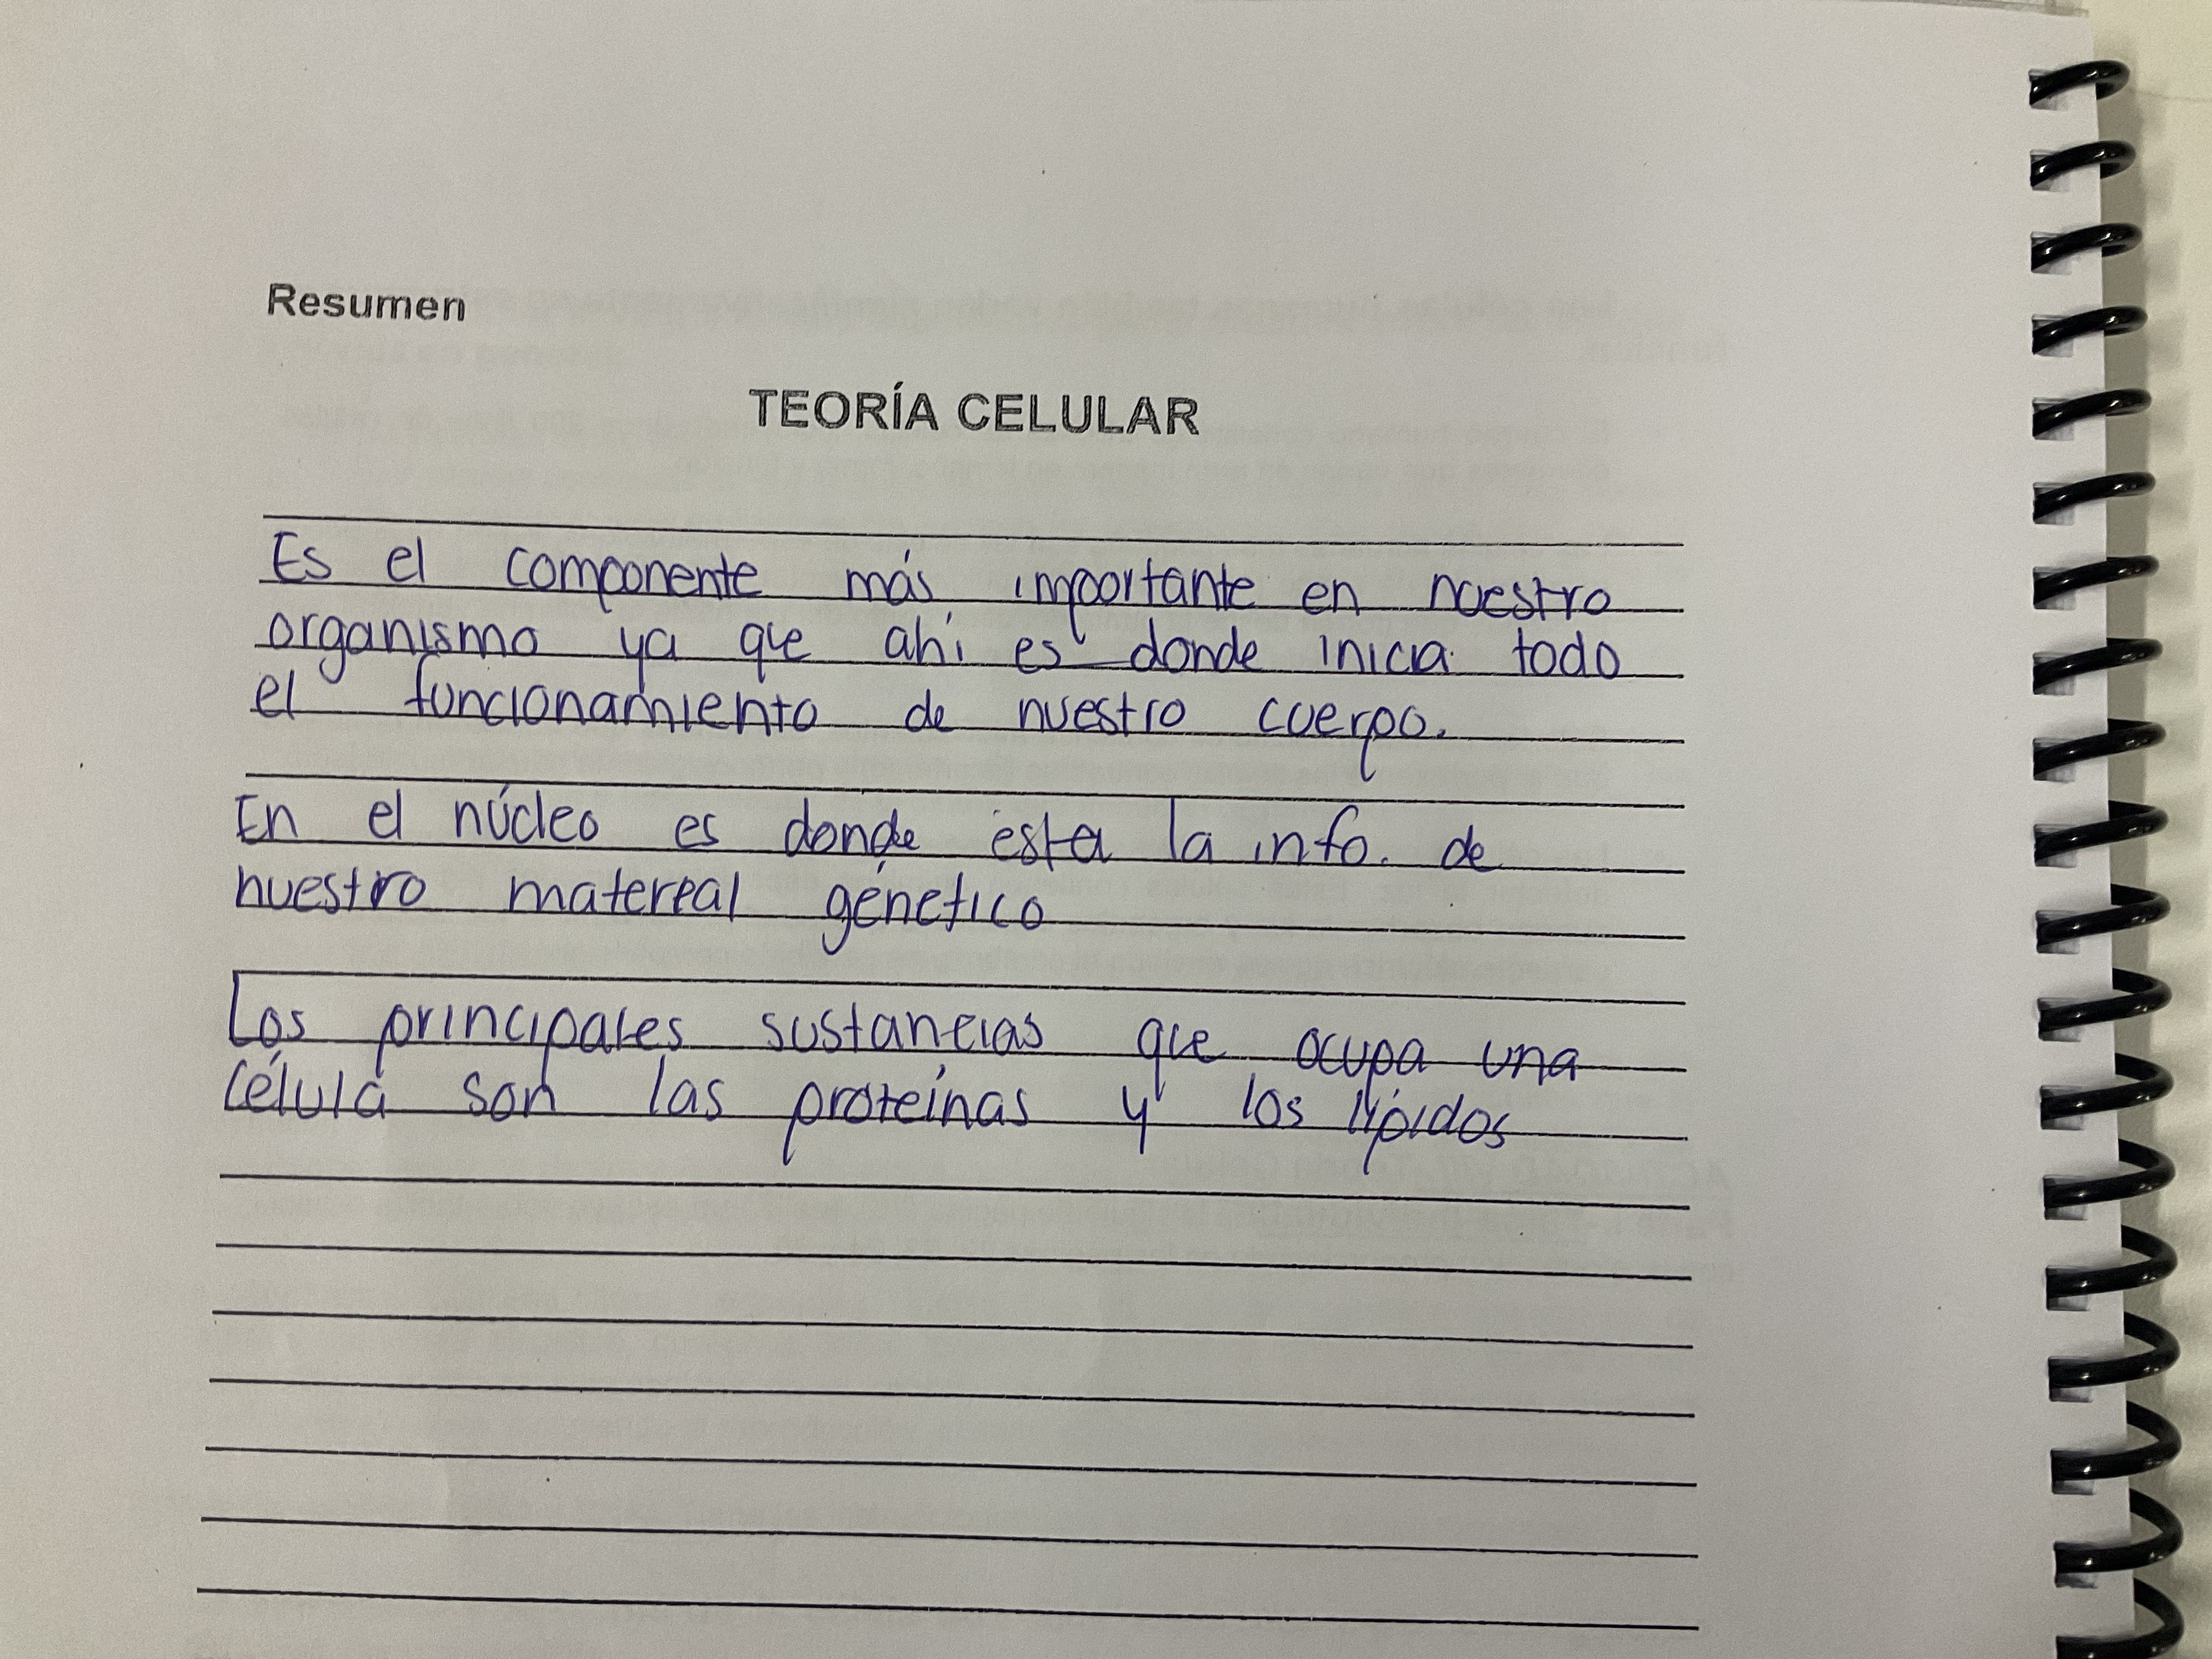 Resumen
TEORÍA CELULAR
Es el componente más importante en nuestro
organismo ya que ahí es donde inicia todo
el funcionamiento de nuestro cuerpo.
En el núcleo es donde esta la info. de
nuestro matereal génetico
Los principales sustancias que ocupa una
célula son las proteínas y los lípidos